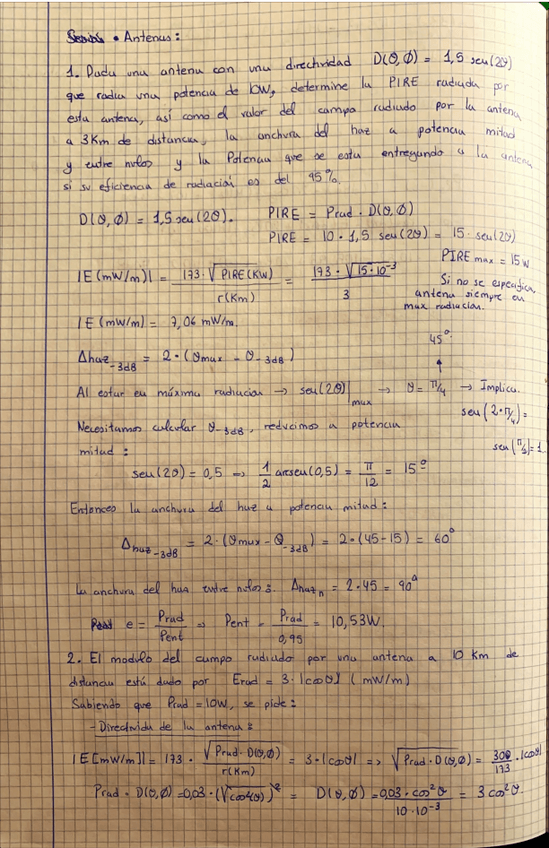 • Antenas:
1. Dada una antena con una directividad D(θ,Ø) = 1,5 seu(2θ)
que radia una potencia de 10W, determine la PIRE radiada por
esta antena, así como el valor del campo radiado por la antena
a 3Km de distancia, la anchura del haz a potencia mitad
y entre nulos y la Potencia que se esta entregando a la antena
si su eficiencia de radiación es del 95%.
D(θ,Ø) = 1,5 seu(2θ). PIRE = Prad · D(θ,Ø)
PIRE = 10 · 1,5 seu(2θ) = 15 · seu(2θ)
PIRE max = 15 W
|E (mW/m)| = 173·√PIRE(KW) / r(Km) = 173·√15·10⁻³ / 3
Si no se especifica,
antena siempre en
max radiación.
|E (mW/m) = 7,06 mW/m.
Δhaz-3dB = 2·(θmax - θ-3dB)
45º
Al estar en máxima radiación → seu(2θ)|max → θ = π/4 → Implica.
seu(2·π/4) =
seu(π/2) = 1
Necesitamos calcular θ-3dB, reducimos a potencia
mitad :
seu(2θ) = 0,5 => 1/2 arcseu(0,5) = π/12 = 15º
Entonces la anchura del haz a potencia mitad:
Δhaz-3dB = 2·(θmax - θ-3dB) = 2·(45-15) = 60º
La anchura del haz entre nulos: Δhazn = 2·45 = 90º
e = Prad/Pent => Pent = Prad/0,95 = 10,53W.
2. El modulo del campo radiado por una antena a 10 Km de
distancia está dado por Erad = 3·|cosθ| (mW/m)
Sabiendo que Prad = 10W, se pide:
- Directivida de la antena:
|E[mW/m]| = 173 · √Prad·D(θ,Ø) / r(Km) = 3·|cosθ| => √Prad·D(θ,Ø) = 300/173 · |cosθ|
Prad · D(θ,Ø) = 0,03 · (√cos(θ))² = D(θ,Ø) = 0,03·cos²θ / 10·10⁻³ = 3 cos²θ.